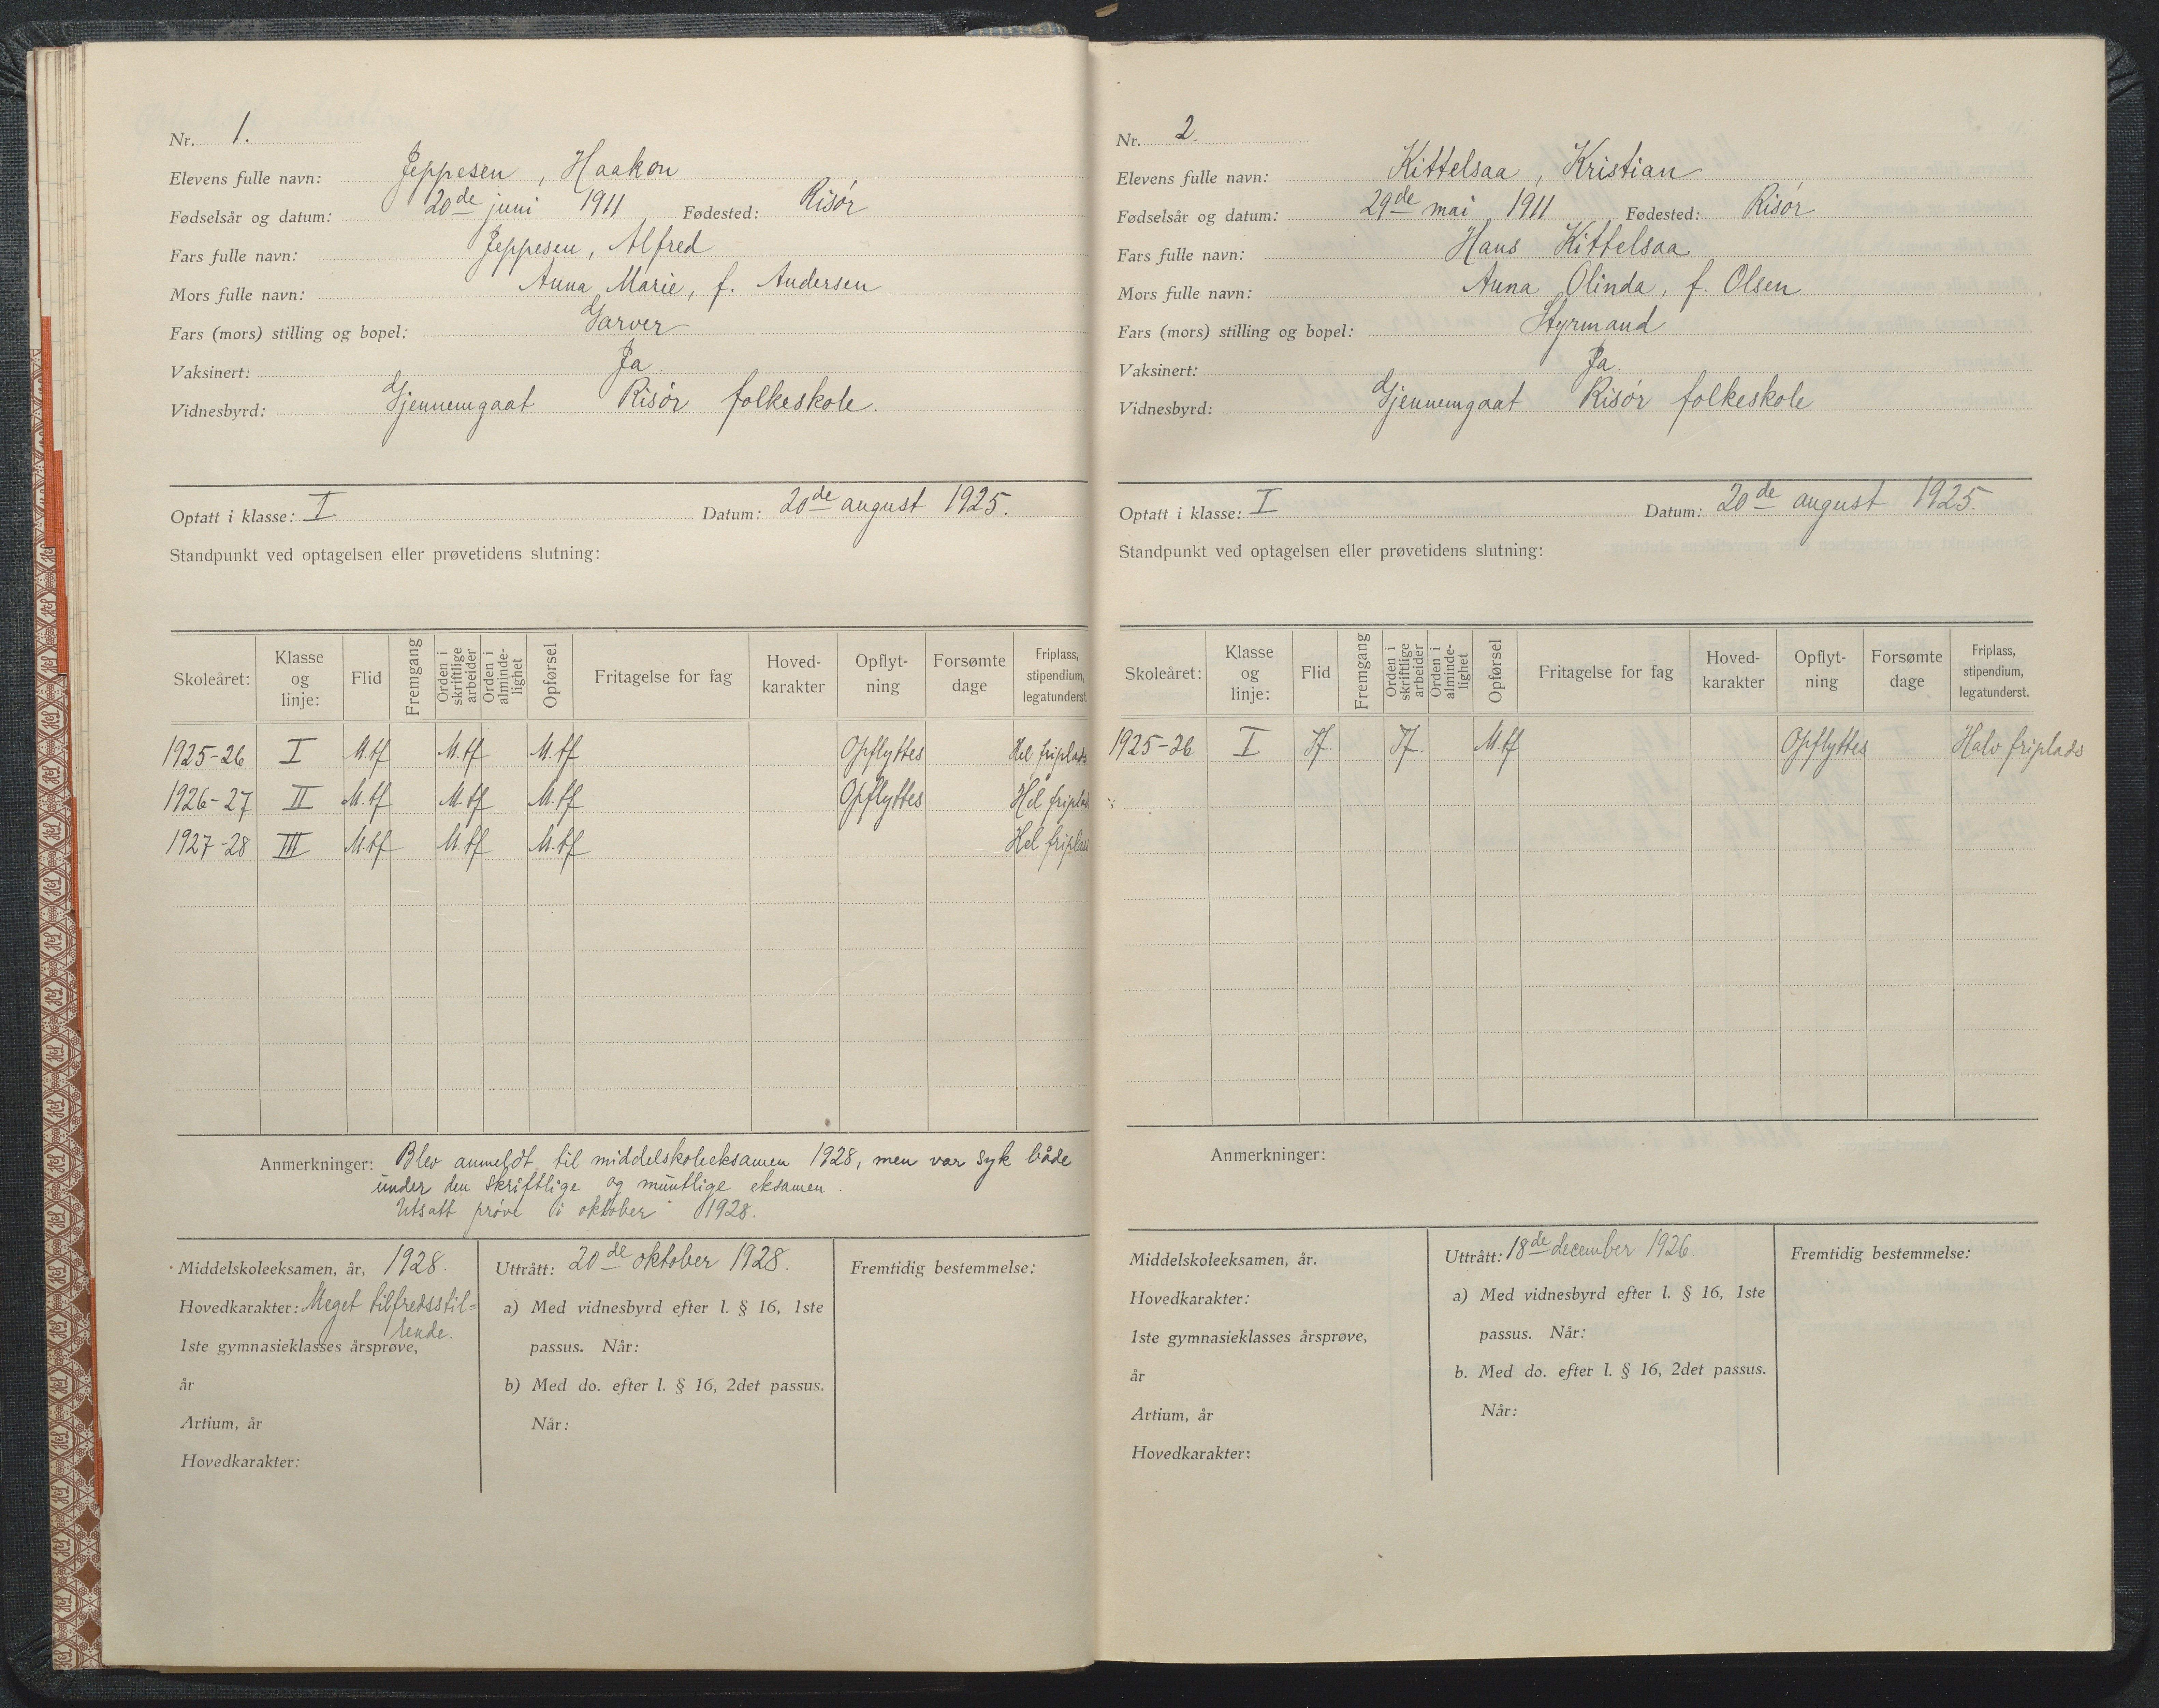 Nr. 1.
Elevens fulle navn: Jeppesen, Haakon
Fødselsår og datum: 20de juni 1911 Fødested: Risør
Fars fulle navn: Jeppesen, Alfred
Mors fulle navn: Anna Marie, f. Andersen
Fars (mors) stilling og bopel: Garver
Vaksinert: Ja.
Vidnesbyrd: Gjennemgaat Risør folkeskole.
Optatt i klasse: I Datum: 20de august 1925.
Standpunkt ved optagelsen eller prøvetidens slutning:
Skoleåret: Klasse og linje: Flid Fremgang Orden i skriftlige arbeider Orden i alminde-lighet Opførsel Fritagelse for fag Hoved-karakter Opflyt-ning Forsømte dage Friplass, stipendium, legatunderst.
1925-26 I M.tf M.tf M.tf Opflyttes Hel friplads
1926-27 II M.tf M.tf M.tf Opflyttes Hel friplad
1927-28 III M.tf M.tf M.tf Hel friplass
Anmerkninger: Blev anmeldt til middelskoleeksamen 1928, men var syk både
under den skriftlige og muntlige eksamen.
Utsatt prøve i oktober 1928.
Middelskoleeksamen, år, 1928.
Hovedkarakter: Meget tilfredsstil=
lende.
1ste gymnasieklasses årsprøve,
år
Artium, år
Hovedkarakter:
Uttrått: 20de oktober 1928.
a) Med vidnesbyrd efter l. § 16, 1ste
passus. Når:
b) Med do. efter l. § 16, 2det passus.
Når:
Fremtidig bestemmelse:
Nr. 2.
Elevens fulle navn: Kittelsaa, Kristian
Fødselsår og datum: 29de mai 1911 Fødested: Risør
Fars fulle navn: Hans Kittelsaa
Mors fulle navn: Anna Olinda, f. Olsen
Fars (mors) stilling og bopel: Styrmand
Vaksinert: Ja.
Vidnesbyrd: Gjennemgaat Risør folkeskole
Optatt i klasse: I Datum: 20de august 1925.
Standpunkt ved optagelsen eller prøvetidens slutning:
Skoleåret: Klasse og linje: Flid Fremgang Orden i skriftlige arbeider Orden i alminde-lighet Opførsel Fritagelse for fag Hoved-karakter Opflyt-ning Forsømte dage Friplass, stipendium, legatunderst.
1925-26 I Tf. Tf. M.tf Opflyttes Halv friplads
Anmerkninger:
Middelskoleeksamen, år.
Hovedkarakter:
1ste gymnasieklasses årsprøve,
år
Artium, år
Hovedkarakter:
Uttrått: 18de december 1926.
a) Med vidnesbyrd efter l. § 16, 1ste
passus. Når:
b. Med do. efter l. § 16, 2det passus.
Når:
Fremtidig bestemmelse: